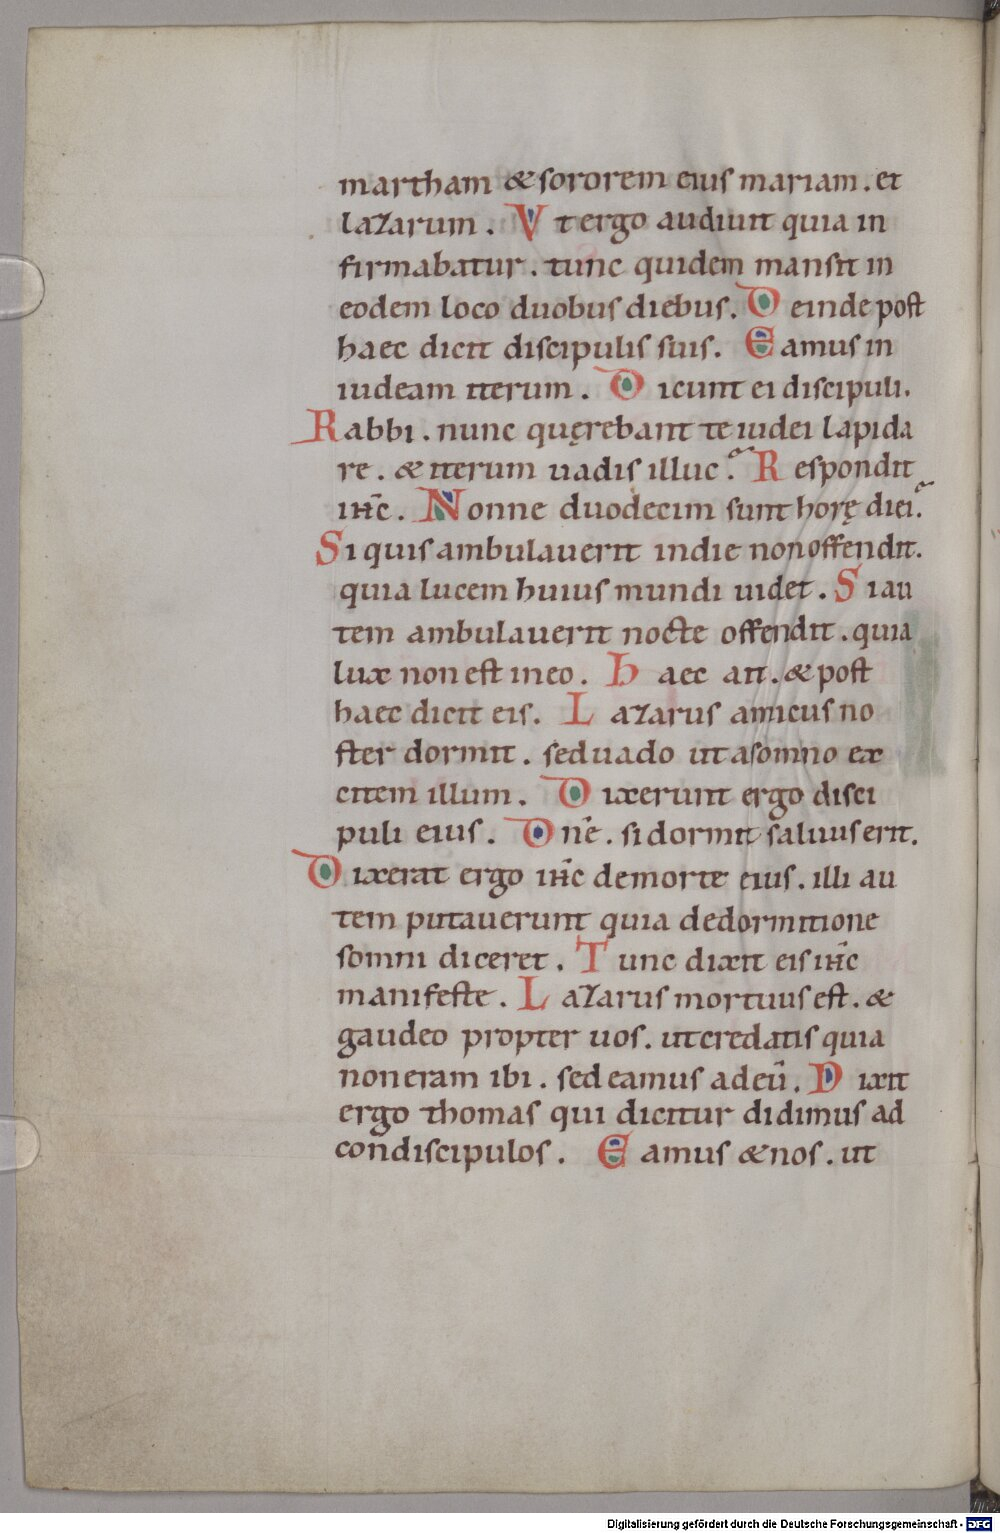 martham & sororem eius mariam. et
lazarum. Vt ergo audiuit quia in
firmabatur. tunc quidem mansit in
eodem loco duobus diebus. Deinde post
haec dicit discipulis suis. Eamus in
iudeam iterum. Dicunt ei discipuli.
Rabbi. nunc quęrebant te iudei lapida
re. & iterum uadis illuc? Respondit
ih̅c. Nonne duodecim sunt horę diei?
Si quis ambulauerit in die non offendit.
quia lucem huius mundi uidet. Si au
tem ambulauerit nocte offendit. quia
lux non est in eo. Haec ait. & post
haec dicit eis. Lazarus amicus no
ster dormit. sed uado ut a somno ex
citem illum. Dixerunt ergo disci
puli eius. Dn̅e. si dormit saluus erit.
Dixerat ergo ih̅c de morte eius. illi au
tem putauerunt quia de dormitione
somni diceret. Tunc dixit eis ih̅c
manifeste. Lazarus mortuus est. &
gaudeo propter uos. ut credatis quia
non eram ibi. sed eamus ad eu̅. Dixit
ergo thomas qui dicitur didimus ad
condiscipulos. Eamus & nos. ut
Digitalisierung gefördert durch die Deutsche Forschungsgemeinschaft - DFG